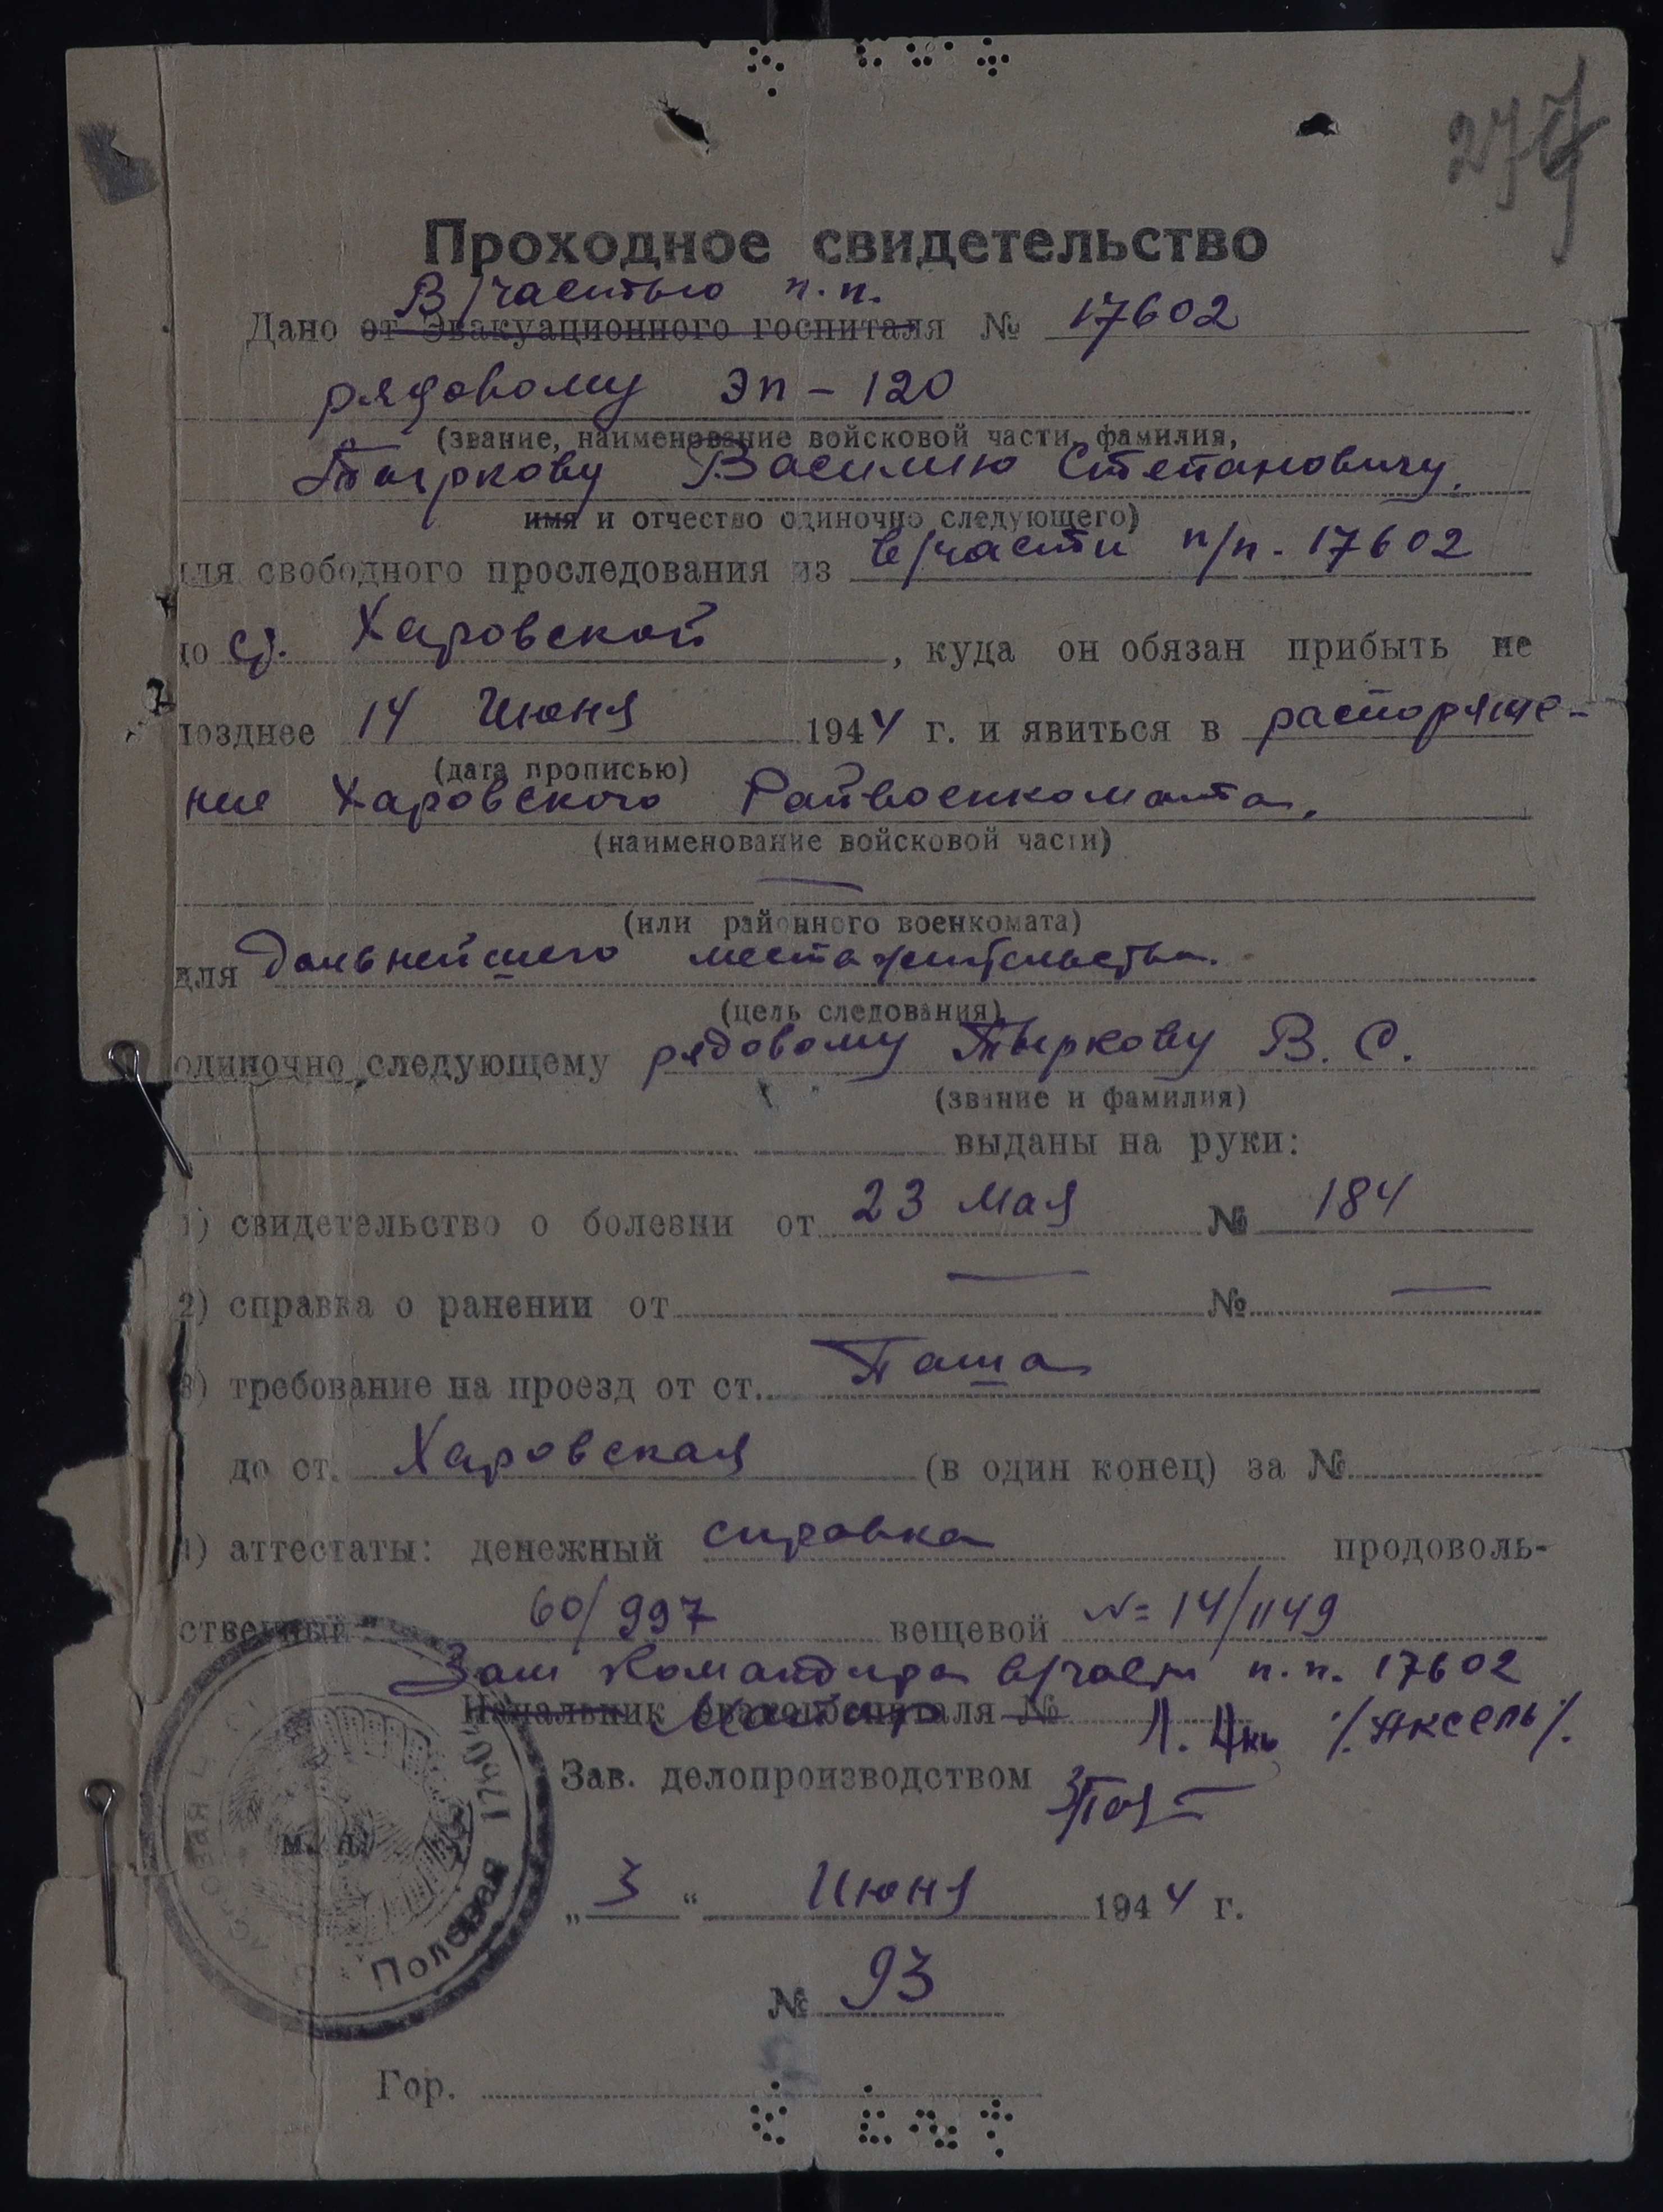 277
Проходное свидетельство
В/частью п.п.
Дано от Эвакуационного госпиталя № 17602
рядовому ЭП-120
(звание, наименование войсковой части, фамилия,
Тыркову Василию Степановичу.
имя и отчество одиночно следующего)
для свободного проследования из в/части п/п. 17602
до ст. Харовской, куда он обязан прибыть не
позднее 14 Июня 1944 г. и явиться в распоряже-
(дата прописью)
ние Харовского Райвоенкомата.
(наименование войсковой части)
(или районного военкомата)
для дальнейшего местажительства.
(цель следования)
одиночно следующему рядовому Тыркову В. С.
(звание и фамилия)
выданы на руки:
1) свидетельство о болезни от 23 Мая № 184
2) справка о ранении от — № —
3) требование на проезд от ст. Паша
до ст. Харовская (в один конец) за №
4) аттестаты: денежный справка продоволь-
ственный 60/997 вещевой № 14/1149
Зам Командира в/части п.п. 17602
Начальник эвакогоспиталя №
Майор /Аксель/.
Зав. делопроизводством
м. п.
Полевая 17602
„3“ Июня 1944 г.
№ 93
Гор.